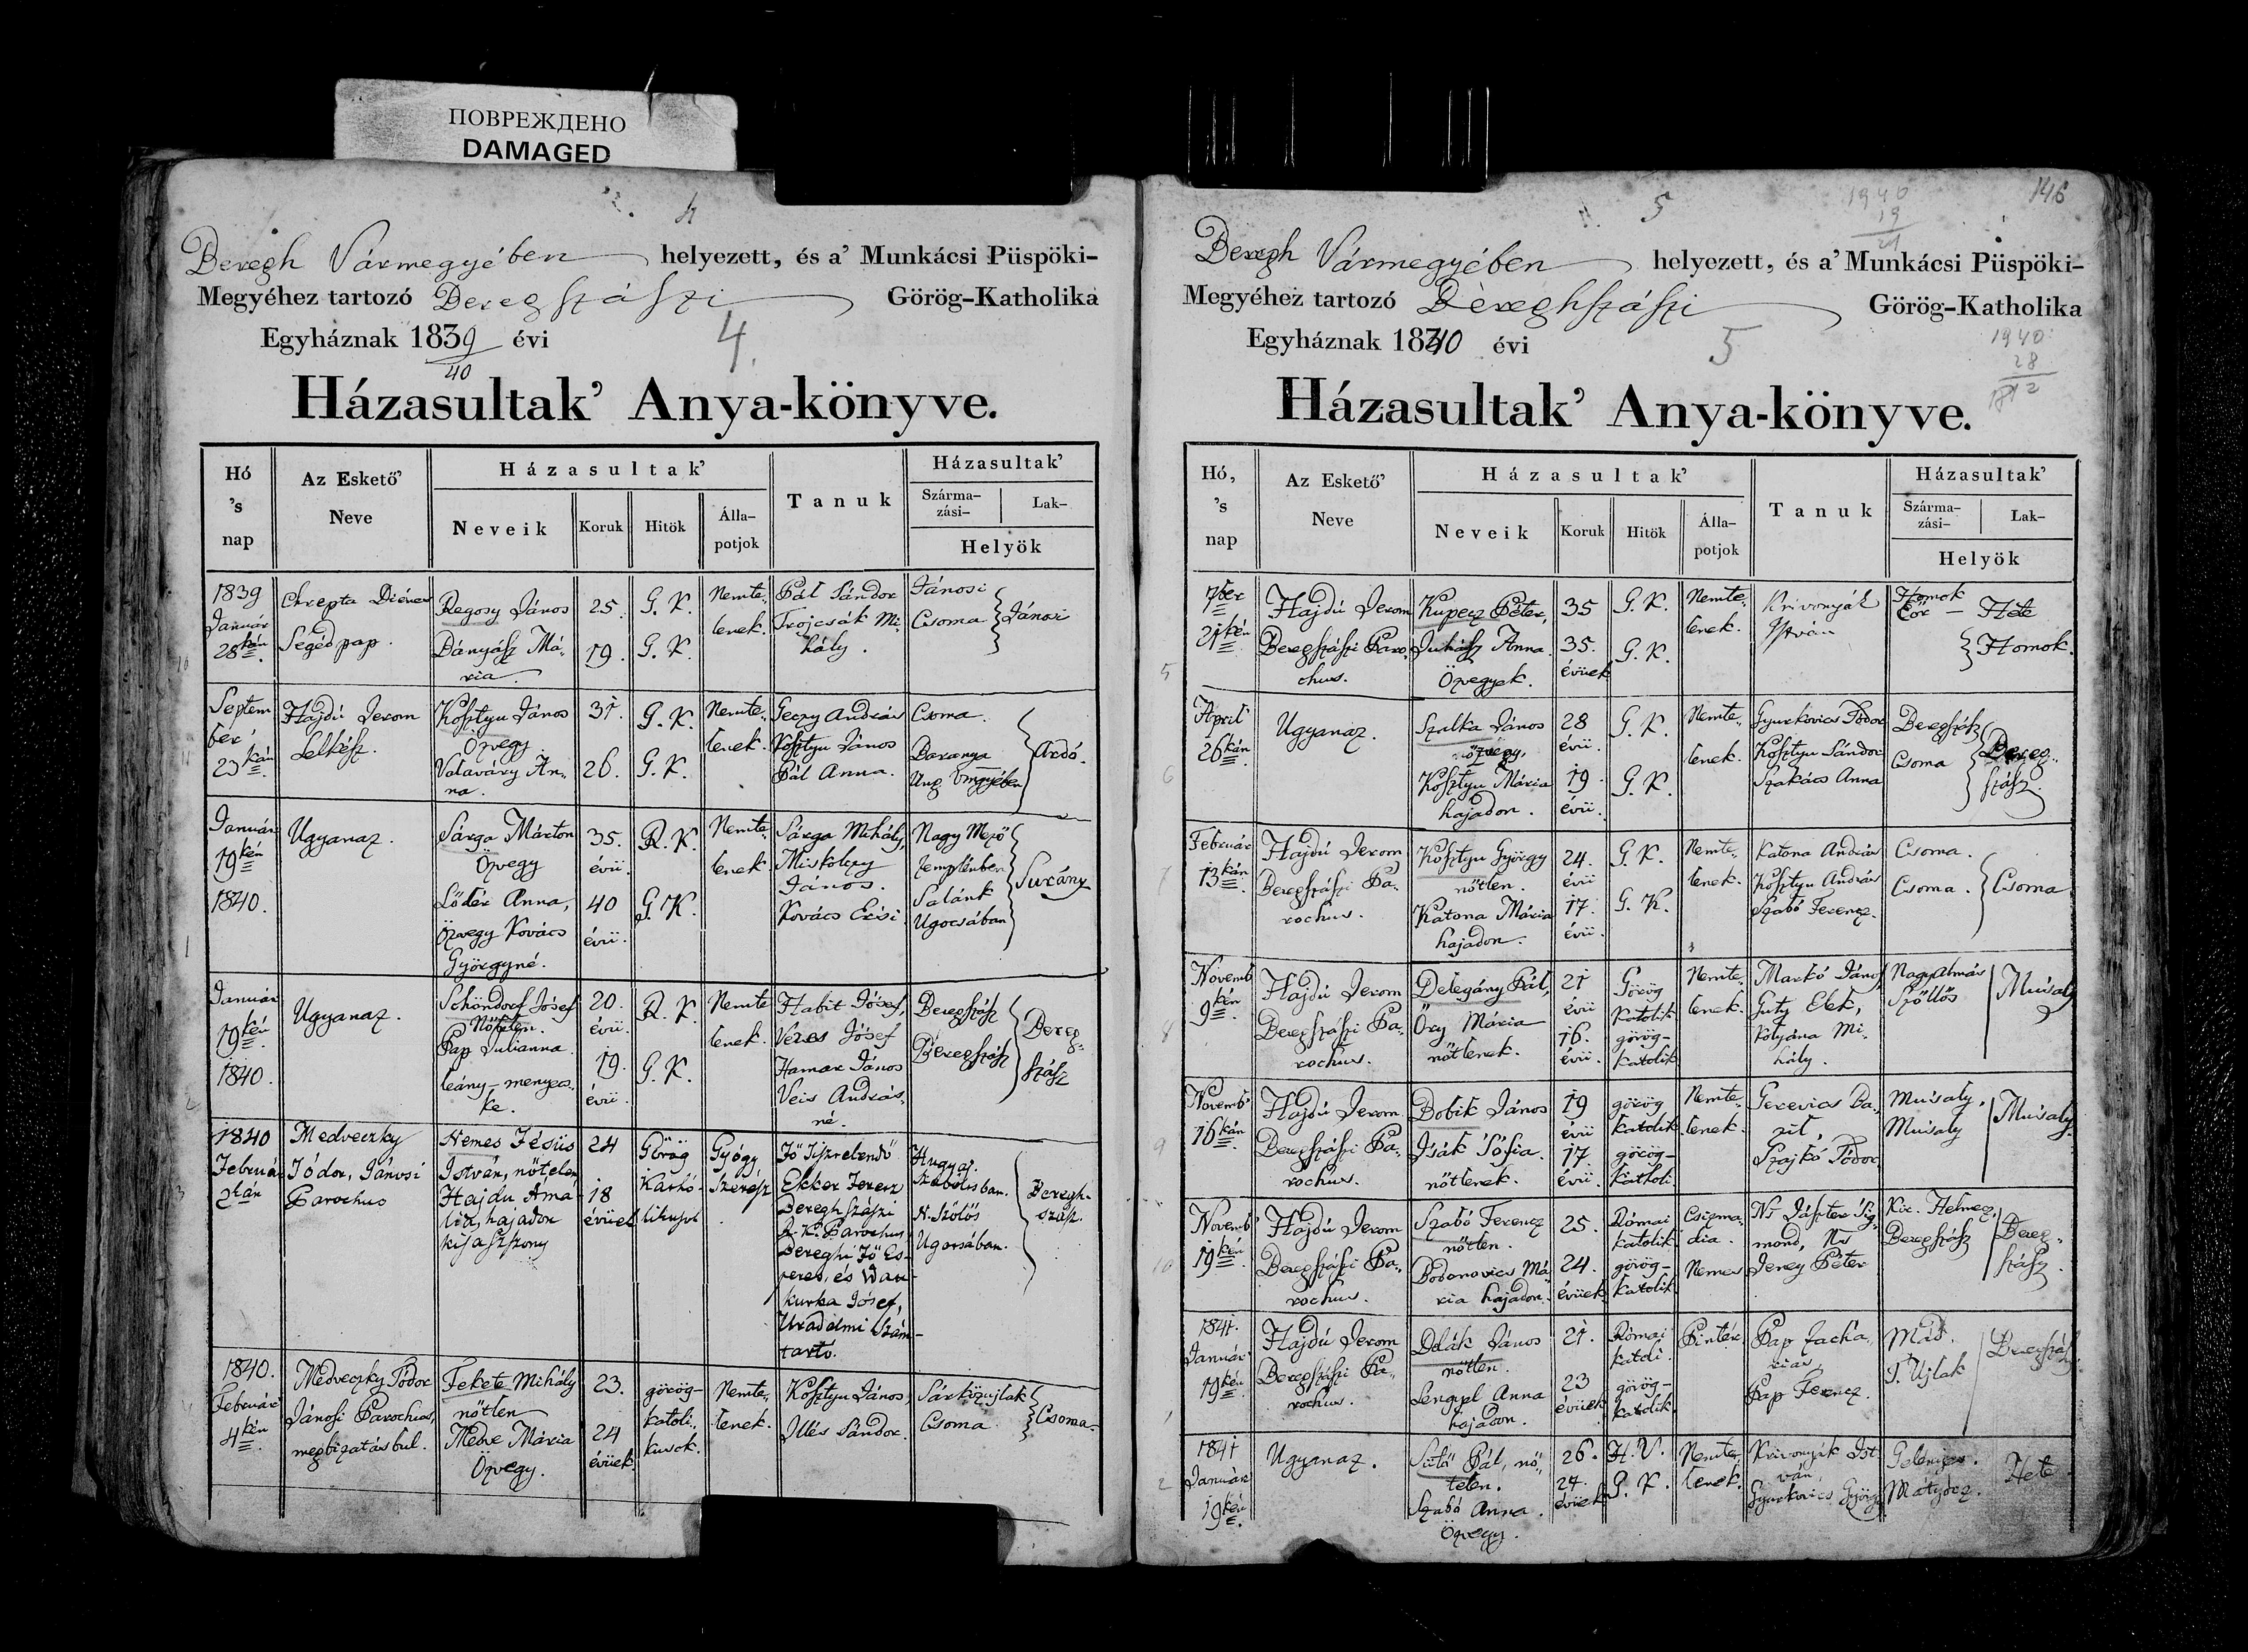 ПОВРЕЖДЕНО
DAMAGED
4
Beregh Vármegyében helyezett, és a' Munkácsi Püspöki-
Megyéhez tartozó Beregszászi Görög-Katholika
Egyháznak 1839 évi
40
4.
Házasultak' Anya-könyve.
Hó 's nap
Az Eskető' Neve
Házasultak'
Neveik
Koruk
Hitök
Álla-
potjok
Tanuk
Házasultak'
Szárma-
zási-
Lak-
Helyök
1839
Január
28kán
Segéd pap.
Regosy János
Dányász Má-
ria
25.
19.
G. K.
G. K.
Nemte-
lenek.
Pál Sándor
Trojcsák Mi-
hály.
Jánosi
Csoma
Jánosi
Septem
ber
23kán
Hajdú Jerom
Lelkész.
Kosztyu János
Özvegy
Valaváry An-
na.
31.
26.
G. K.
G. K.
Nemte-
lenek.
Geczy András
Kosztyu János
Pál Anna.
Csoma.
Daranya
Ung Vmgyében
Ardó.
Január
19kén
1840.
Ugyanaz.
Sárga Márton
Özvegy
Lődér Anna,
Özvegy Kovács
Györgyné.
35.
évü.
40
évü.
R. K.
G. K.
Nemte-
lenek
Sárga Mihály,
Miskolczy
János.
Kovács Erisi
Nagy Mező
Zemplénben
Salánk
Ugocsában
Surány
Január
19kén
1840.
Ugyanaz.
Schöndorf Jósef
Nőtelen.
Pap Julianna.
leány-menyecs-
ke.
20.
évü.
19.
évü.
R. K.
G. K.
Nemte
lenek.
Habit Jósef,
Veres Jósef
Hamar János
Veis András-
né.
Beregszász
Beregszász
Bereg-
szász
1840
Február
2kán
Medveczky
Tódor, Jánosi
Parochus
Nemes Jésüs
István, nőtelen
Hajdu Amá-
lia, hajadon
kisaszszony
24
18
évüek
Görög
Katho-
likusok
Gyógy
Szerész
Fő Tisztelendő
Ekker Ferencz
Bereghszászi
R. K. Parochus
Bereghi Fő Es-
peres, és Wan-
kurka Jósef,
Uradalmi Szám-
tartó.
Hugyaj.
Szabolcsban.
N. Szőlős
Ugocsában.
Beregh-
szász.
1840.
Február
4kén
Medveczky Tódor
Jánosi Parochus,
megbizatásbul.
Fekete Mihály
nőtlen
Medve Mária
Özvegy.
23.
24
évüek.
görög-
katoli-
kusok.
Nemte-
lenek.
Kosztyu János,
Illés Sándor.
Sárközujlak
Csoma
Csoma
5
1940
19
21
146
Beregh Vármegyében helyezett, és a' Munkácsi Püspöki-
Megyéhez tartozó Bereghszászi Görög-Katholika
Egyháznak 1840 évi
5
1940
28
1912
Házasultak' Anya-könyve.
Hó, 's nap
Az Eskető' Neve
Házasultak'
Neveik
Koruk
Hitök
Álla-
potjok
Tanuk
Házasultak'
Szárma-
zási-
Lak-
Helyök
7ber
21kén
Hajdú Jerom
Beregszászi Paro-
chus.
Kupecz Péter,
Juhász Anna.
Özvegyek.
35
35.
évüek
G. K.
G. K.
Nemte-
lenek.
Krivonyák
István
Homok
Hete
Homok.
April
26kán
Ugyanaz.
Szalka János
özvegy,
Kosztyu Mária
hajadon.
28
évü.
19.
évü.
G. K.
G. K.
Nemte-
lenek.
Gyurkovics Tódor
Kosztyu Sándor
Szakács Anna
Beregszász
Csoma
Bereg-
szász.
Február
13kán
Hajdú Jerom
Beregszászi Pa-
rochus.
Kosztyu György
nőtlen.
Katona Mária
hajadon.
24.
évü
17.
évü.
G. K.
G. K.
Nemte-
lenek.
Katona András
Kosztyu András
Szabó Ferencz.
Csoma.
Csoma.
Csoma
Novemb
9kén
Hajdú Jerom
Beregszászi Pa-
rochus.
Delegány Pál,
Őry Mária
nőtlenek.
21
évü
16.
évü.
Görög
Katolik
görög-
katolik
Nemte-
lenek.
Markó János
Guty Elek,
Kolyána Mi-
hály.
Nagyalmás
Szőllős
Muisaly
Novemb
16kán
Hajdú Jerom
Beregszászi Pa-
rochus.
Bobik János
Isák Sófia.
nőtlenek.
19
évü
17.
évü.
görög
katolik
görög-
katholi
Nemte-
lenek.
Gerevics Ba-
zil
Szajkó Tódor
Muisaly.
Muisaly
Muisaly.
Novemb
19kén
Hajdú Jerom
Beregszászi Pa-
rochus.
Szabó Ferencz
nőtlen.
Bodonovics Má-
ria hajadon.
25.
24.
évüek
Római
katolik
görög-
katolik
Csizma-
dia.
Nemes
Ns Pászter Sig-
mond, Ns
Jeney Péter
Kir. Helmecz,
Beregszász
Bereg-
szász.
1841.
Január
19kén
Hajdú Jerom
Beregszászi Pa-
rochus.
Deák János
nőtlen.
Lengyel Anna
hajadon.
21.
23
évüek
Római
katoli.
görög-
katolik.
Pintér
Pap Zachá-
riás
Pap Ferencz.
Mád.
T. Ujlak
Beregszász.
1841
Január
19kén
Ugyanaz.
Sütő Pál, nő-
telen.
Szabó Anna.
Özvegy.
26.
24.
évüek
H. V.
G. K.
Nemte-
lenek.
Krivonyák Ist
ván,
Gyurkovics György
Gelénzes.
Mátyócz.
Hete